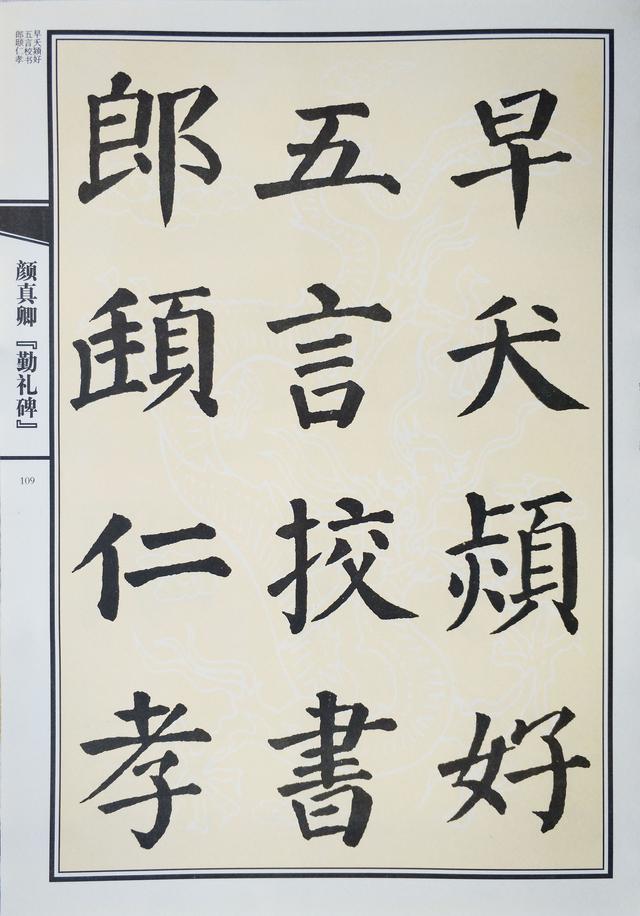 早夭颖好
五言校书
郎颐仁孝
早夭頴好
五言挍書
郎頤仁孝
颜真卿『勤礼碑』
109